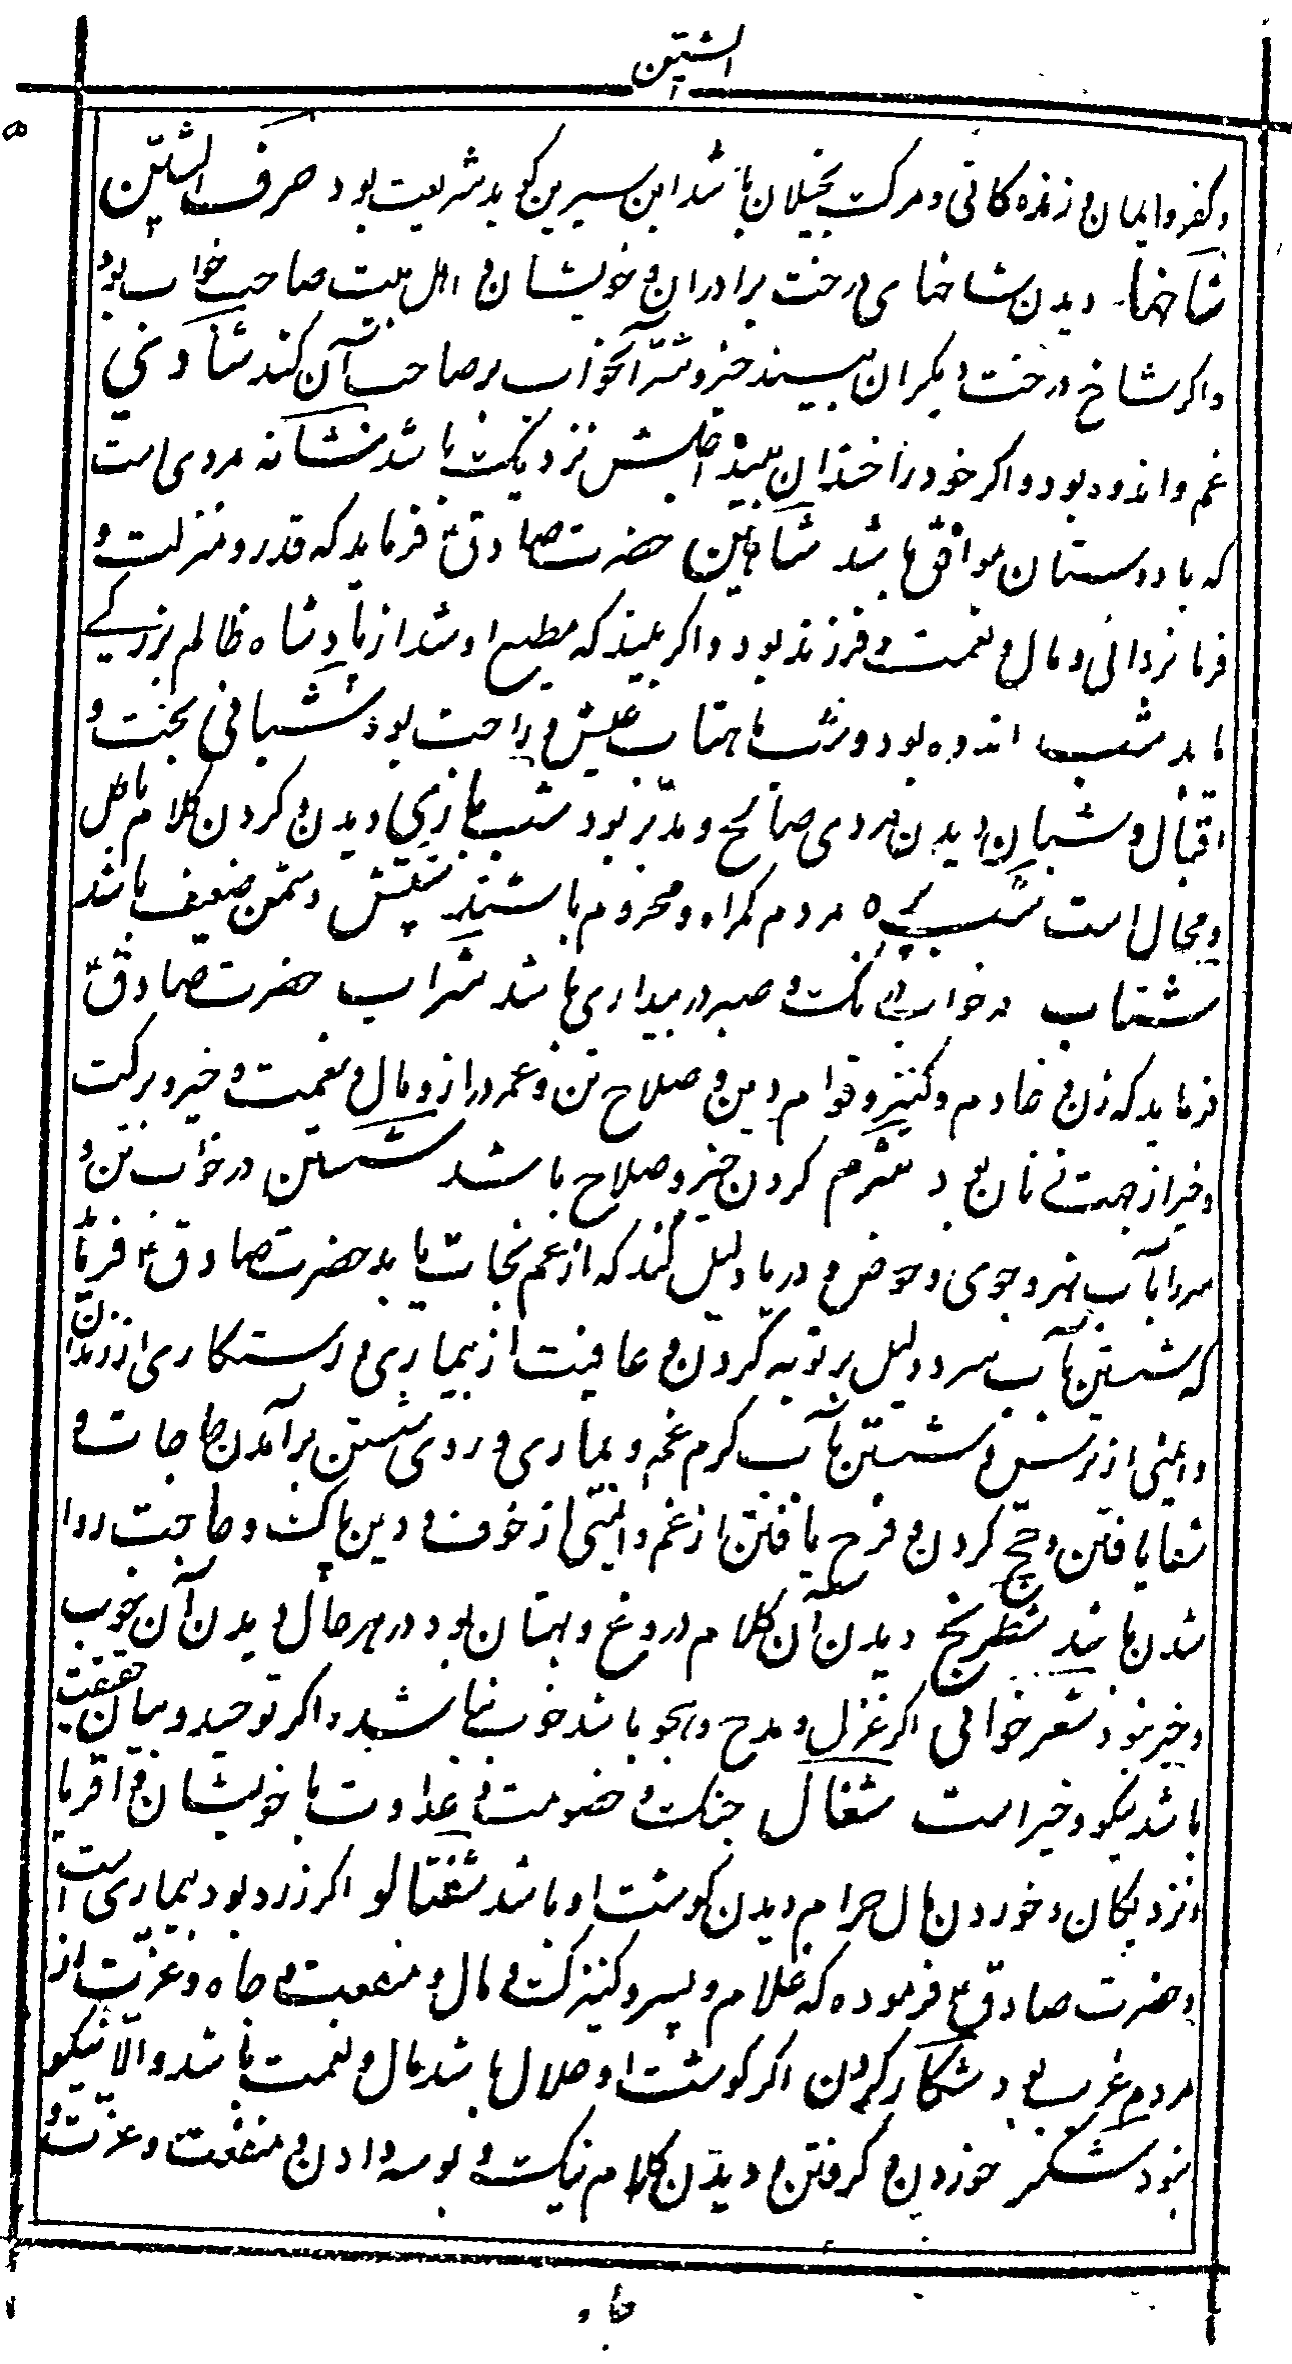 الشین
و کفر و ایمان و زنده کانی و مرک بخیلان باشد ابن سیرین کوید شریعت بود حرف الشین
شاخها دیدن شاخهای درخت برادران و خویشان و اهل بیت صاحب خواب بود
و اکر شاخ درخت دیکران بیند خیر و شر آنخواب بر صاحب آن کند شادی
غم و اندوه بود و اکر خود را خندان بیند اجلش نزدیک باشد شانه مردی است
که با دوستان موافق باشد شاهین حضرت صادق ع فرماید که قدر و منزلت و
فرمانروائی و مال و نعمت و فرزند بود و اکر بیند که مطیع او شد از پادشاه ظالم بزرکی
یابد شب اندوه بود و شب ماهتاب عیش و راحت بود شبانی بخت و
اقبال و شبان دیدن مردی صالح و مدبر بود شب بازی دیدن و کردن کلام باطل
و محال است شب پره مردم کمراه و محروم باشند شپش دشمن ضعیف باشد
شتاب در خواب درنک و صبر در بیداری باشد شراب حضرت صادق ع
فرماید که زن و خادم و کنیز و قوام دین و صلاح تن و عمر دراز و مال و نعمت و خیر و برکت
و خیر از جهت زنان بود شرم کردن خیر و صلاح باشد شستن در خواب تن و
سر را بآب نهر و جوی و حوض و دریا دلیل کند که از غم نجات یابد حضرت صادق ع فرماید
که شستن بآب سرد دلیل بر توبه کردن و عافیت از بیماری و رستکاری از زندان
و ایمنی از ترس و شستن بآب کرم غم و بیماری و روی شستن بر آمدن حاجات و
شفا یافتن و حج کردن و فرح یافتن از غم و ایمنی از خوف و دین پاک و حاجت روا
شدن باشد شطرنج دیدن آن کلام دروغ و بهتان بود در هر حال دیدن آن خوب
و خیر نبود شعر خوانی اکر غزل و مدح و هجو باشد خوب نباشد و اکر توحید و بیان حقیقت
باشد نیکو و خیر است شغال جنک و خصومت و عداوت با خویشان و اقربا
و نزدیکان و خوردن مال حرام دیدن کوشت او باشد شفتالو اکر زرد بود بیماری است
و حضرت صادق ع فرموده که غلام و پسر و کنیزک و مال و منفعت و جاه و عزت از
مردم غریب بود شکار کردن اکر کوشت او حلال باشد مال و نعمت باشد و الا نیکو
نبود شکر خوردن و کرفتن و دیدن کلام نیک و بوسه دادن و منفعت و عزت و
جاه